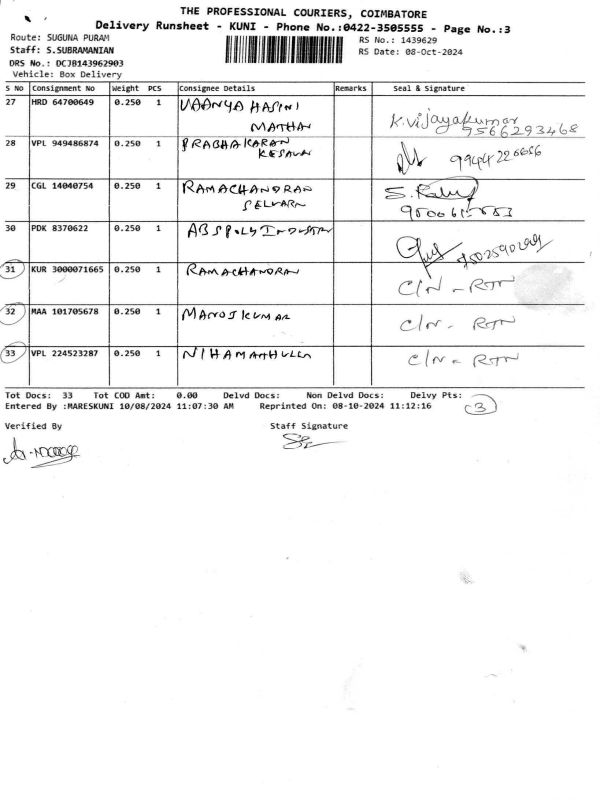 THE PROFESSIONAL COURIERS, COIMBATORE
Delivery Runsheet - KUNI - Phone No.:0422-3505555 - Page No.:3
Route: SUGUNA PURAM
RS No.: 1439629
Staff: S.SUBRAMANIAN
RS Date: 08-Oct-2024
DRS No.: DCJB143962903
Vehicle: Box Delivery
S No Consignment No Weight PCS Consignee Details Remarks Seal & Signature
27 HRD 64700649 0.250 1 VAANYA HASINI
MATHAN
K.Vijayakumar
9566293468
28 VPL 949486874 0.250 1 PRABHAKARAN
KESAVAN
29 CGL 14040754 0.250 1 RAMACHANDRAN
SELVARN
30 PDK 8370622 0.250 1 ABS POLY INDUSTRY
31 KUR 3000071665 0.250 1 RAMACHANDRAN C/N - RTN
32 MAA 101705678 0.250 1 MANOJKUMAR C/N - RTN
33 VPL 224523287 0.250 1 NIHAMATHULLA C/N - RTN
Tot Docs: 33 Tot COD Amt: 0.00 Delvd Docs: Non Delvd Docs: Delvy Pts:
Entered By :MARESKUNI 10/08/2024 11:07:30 AM Reprinted On: 08-10-2024 11:12:16
3
Verified By Staff Signature